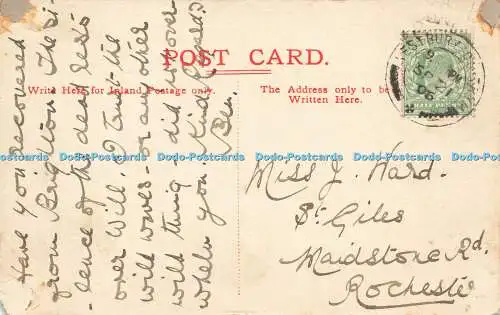 POST CARD.
Write Here for Inland Postage only.
The Address only to be
Written Here.
Have you recovered
from Brighton The si-
lence of the dead
over Will. I trust the
wild waves - or any other
wild thing - did not over
whelm you Kind Regards?
Miss J. Ward.
St Giles
Maidstone Rd.
Rochester
HALF PENNY
Dodo-Postcards Dodo-Postcards Dodo-Postcards Dodo-Postcards Dodo-Postcards Dodo-Postcards Dodo-Postcards